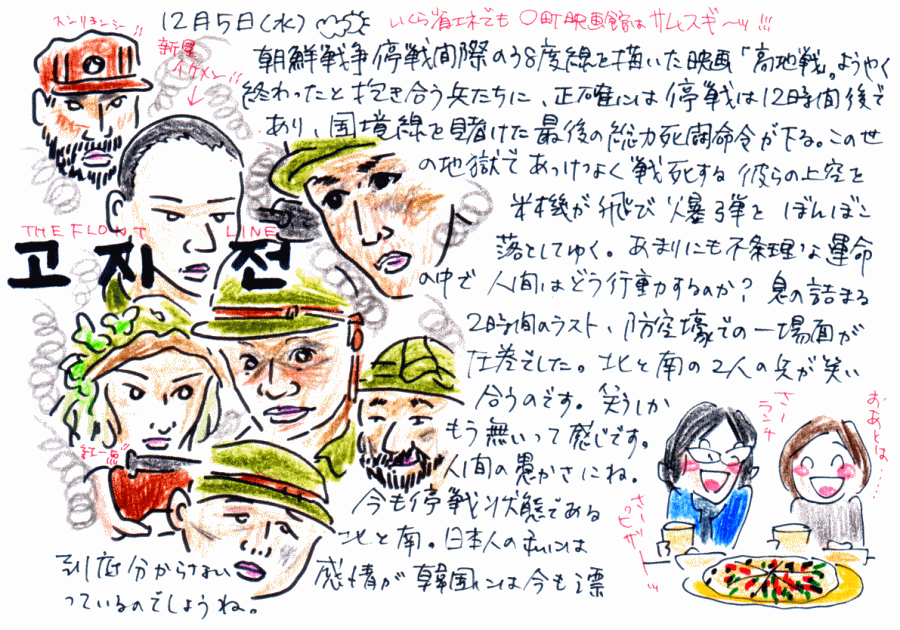 12月5日(水)
いくら省エネでも 〇町映画館はサムスギ〜ッ!!!
スンリョンシー!!
新星
イケメン!!
朝鮮戦争停戦間際の38度線を描いた映画「高地戦」。ようやく
終わったと抱き合う兵たちに、正確には停戦は12時間後で
あり、国境線を賭けた最後の総力死闘命令が下る。この世
の地獄であっけなく戦死する彼らの上空を
米機が飛び爆弾をぼんぼこ
落としてゆく。あまりにも不条理な運命
の中で人間はどう行動するのか? 息の詰まる
2時間のラスト、防空壕での一場面が
圧巻でした。北と南の2人の兵が笑い
合うのです。笑うしか
もう無いって感じです。
人間の愚かさにね。
今も停戦状態である
北と南。日本人の私には
到底分からない 感情が韓国には今も漂
っているのでしょうね。
THE FLONT LINE
고지전
紅一点
おあとは…
さーランチ
さーいのピザートッ